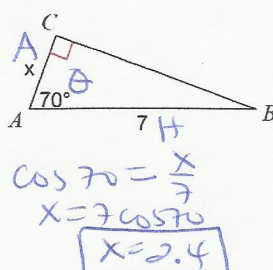 C
A
x θ
A 70° B
7 H
cos 70 = x/7
x = 7 cos 70
x = 2.4